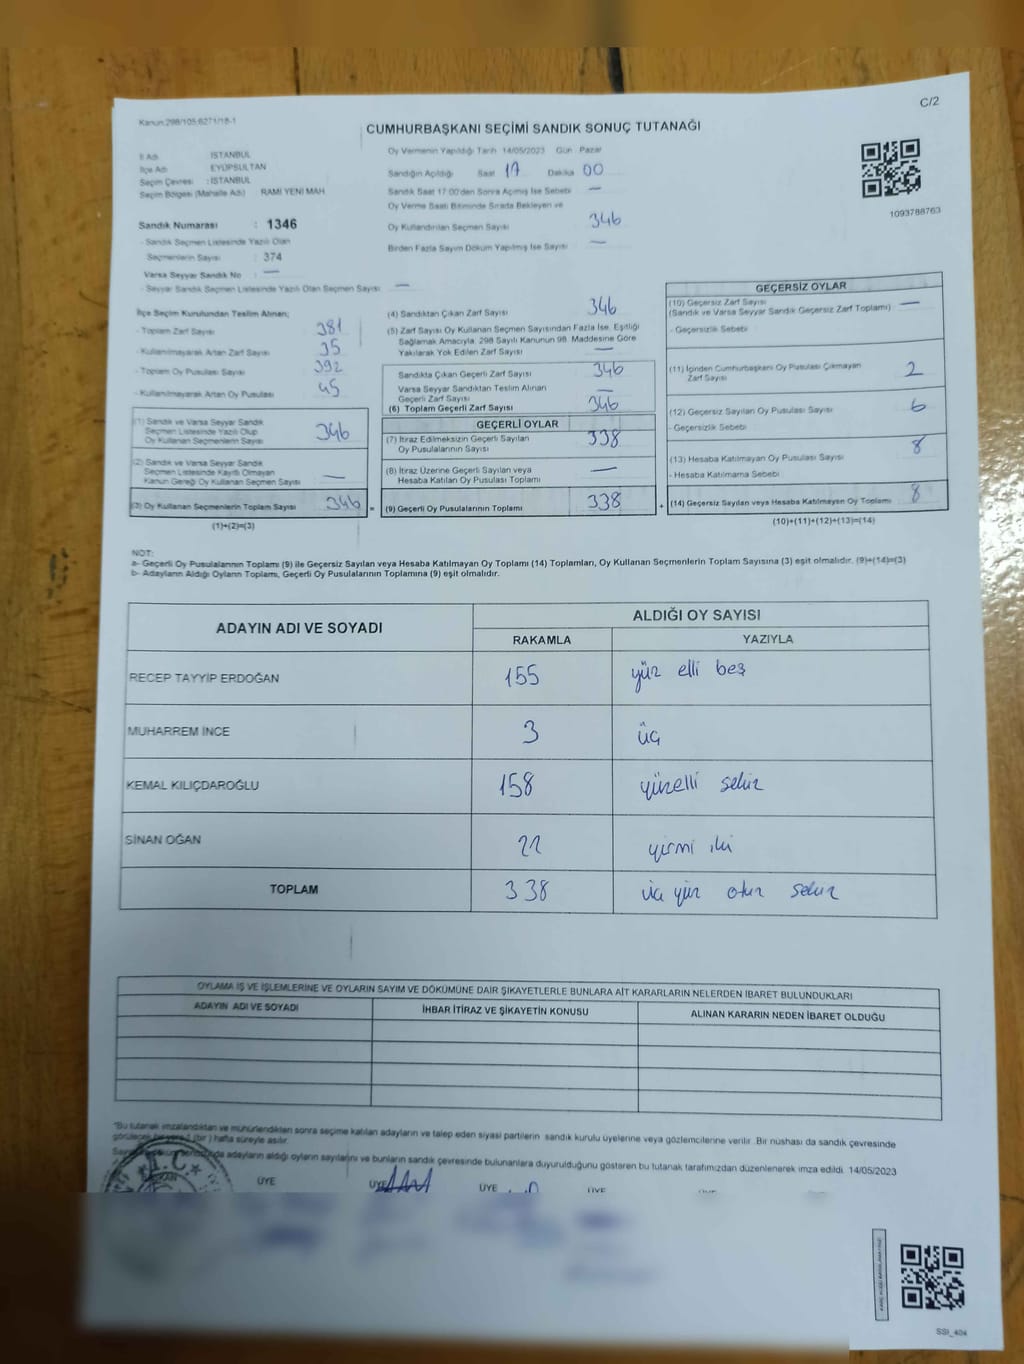 C/2
Kanun:298/105:6271/18-1
CUMHURBAŞKANI SEÇİMİ SANDIK SONUÇ TUTANAĞI
İl Adı : İSTANBUL
İlçe Adı : EYÜPSULTAN
Seçim Çevresi : İSTANBUL
Seçim Bölgesi (Mahalle Adı) RAMİ YENİ MAH
Sandık Numarası : 1346
- Sandık Seçmen Listesinde Yazılı Olan
Seçmenlerin Sayısı : 374
Varsa Seyyar Sandık No : —
- Seyyar Sandık Seçmen Listesinde Yazılı Olan Seçmen Sayısı : —
Oy Vermenin Yapıldığı Tarih 14/05/2023 Gün Pazar
Sandığın Açıldığı Saat 17 Dakika 00
Sandık Saat 17:00'den Sonra Açılmış İse Sebebi —
Oy Verme Saati Bitiminde Sırada Bekleyen ve
Oy Kullandırılan Seçmen Sayısı 346
Birden Fazla Sayım Döküm Yapılmış İse Sayısı —
1093788763
İlçe Seçim Kurulundan Teslim Alınan;
- Toplam Zarf Sayısı 381
- Kullanılmayarak Artan Zarf Sayısı 35
- Toplam Oy Pusulası Sayısı 392
- Kullanılmayarak Artan Oy Pusulası 45
(1) Sandık ve Varsa Seyyar Sandık
Seçmen Listesinde Yazılı Olup
Oy Kullanan Seçmenlerin Sayısı 346
(2) Sandık ve Varsa Seyyar Sandık
Seçmen Listesinde Kayıtlı Olmayan
Kanun Gereği Oy Kullanan Seçmen Sayısı —
(3) Oy Kullanan Seçmenlerin Toplam Sayısı 346 =
(1)+(2)=(3)
(4) Sandıktan Çıkan Zarf Sayısı 346
(5) Zarf Sayısı Oy Kullanan Seçmen Sayısından Fazla İse, Eşitliği
Sağlamak Amacıyla, 298 Sayılı Kanunun 98. Maddesine Göre
Yakılarak Yok Edilen Zarf Sayısı —
Sandıkta Çıkan Geçerli Zarf Sayısı 346
Varsa Seyyar Sandıktan Teslim Alınan
Geçerli Zarf Sayısı —
(6) Toplam Geçerli Zarf Sayısı 346
GEÇERLİ OYLAR
(7) İtiraz Edilmeksizin Geçerli Sayılan
Oy Pusulalarının Sayısı 338
(8) İtiraz Üzerine Geçerli Sayılan veya
Hesaba Katılan Oy Pusulası Toplamı —
(9) Geçerli Oy Pusulalarının Toplamı 338 +
GEÇERSİZ OYLAR
(10) Geçersiz Zarf Sayısı
(Sandık ve Varsa Seyyar Sandık Geçersiz Zarf Toplamı) —
- Geçersizlik Sebebi
(11) İçinden Cumhurbaşkanı Oy Pusulası Çıkmayan
Zarf Sayısı 2
(12) Geçersiz Sayılan Oy Pusulası Sayısı 6
- Geçersizlik Sebebi
(13) Hesaba Katılmayan Oy Pusulası Sayısı 8
- Hesaba Katılmama Sebebi
(14) Geçersiz Sayılan veya Hesaba Katılmayan Oy Toplamı 8
(10)+(11)+(12)+(13)=(14)
NOT:
a- Geçerli Oy Pusulalarının Toplamı (9) ile Geçersiz Sayılan veya Hesaba Katılmayan Oy Toplamı (14) Toplamları, Oy Kullanan Seçmenlerin Toplam Sayısına (3) eşit olmalıdır. (9)+(14)=(3)
b- Adayların Aldığı Oyların Toplamı, Geçerli Oy Pusulalarının Toplamına (9) eşit olmalıdır.
ADAYIN ADI VE SOYADI ALDIĞI OY SAYISI
RAKAMLA YAZIYLA
RECEP TAYYİP ERDOĞAN 155 yüz elli beş
MUHARREM İNCE 3 üç
KEMAL KILIÇDAROĞLU 158 yüzelli sekiz
SİNAN OĞAN 22 yirmi iki
TOPLAM 338 üç yüz otuz sekiz
OYLAMA İŞ VE İŞLEMLERİNE VE OYLARIN SAYIM VE DÖKÜMÜNE DAİR ŞİKAYETLERLE BUNLARA AİT KARARLARIN NELERDEN İBARET BULUNDUKLARI
ADAYIN ADI VE SOYADI İHBAR İTİRAZ VE ŞİKAYETİN KONUSU ALINAN KARARIN NEDEN İBARET OLDUĞU
"Bu tutanak imzalandıktan ve mühürlendikten sonra seçime katılan adayların ve talep eden siyasi partilerin sandık kurulu üyelerine veya gözlemcilerine verilir. Bir nüshası da sandık çevresinde
görülecek bir yere 1 (bir) hafta süreyle asılır.
adayların aldığı oyların sayılarını ve bunların sandık çevresinde bulunanlara duyurulduğunu gösteren bu tutanak tarafımızdan düzenlenerek imza edildi. 14/05/2023
T.C.
ÜYE ÜYE ÜYE ÜYE
SSI_404